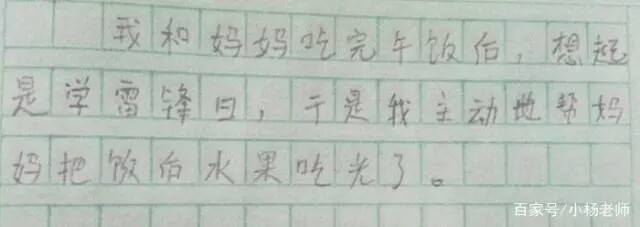 我和妈妈吃完午饭后，想起
是学雷锋日，于是我主动地帮妈
妈把饭后水果吃光了。
百家号/小杨老师